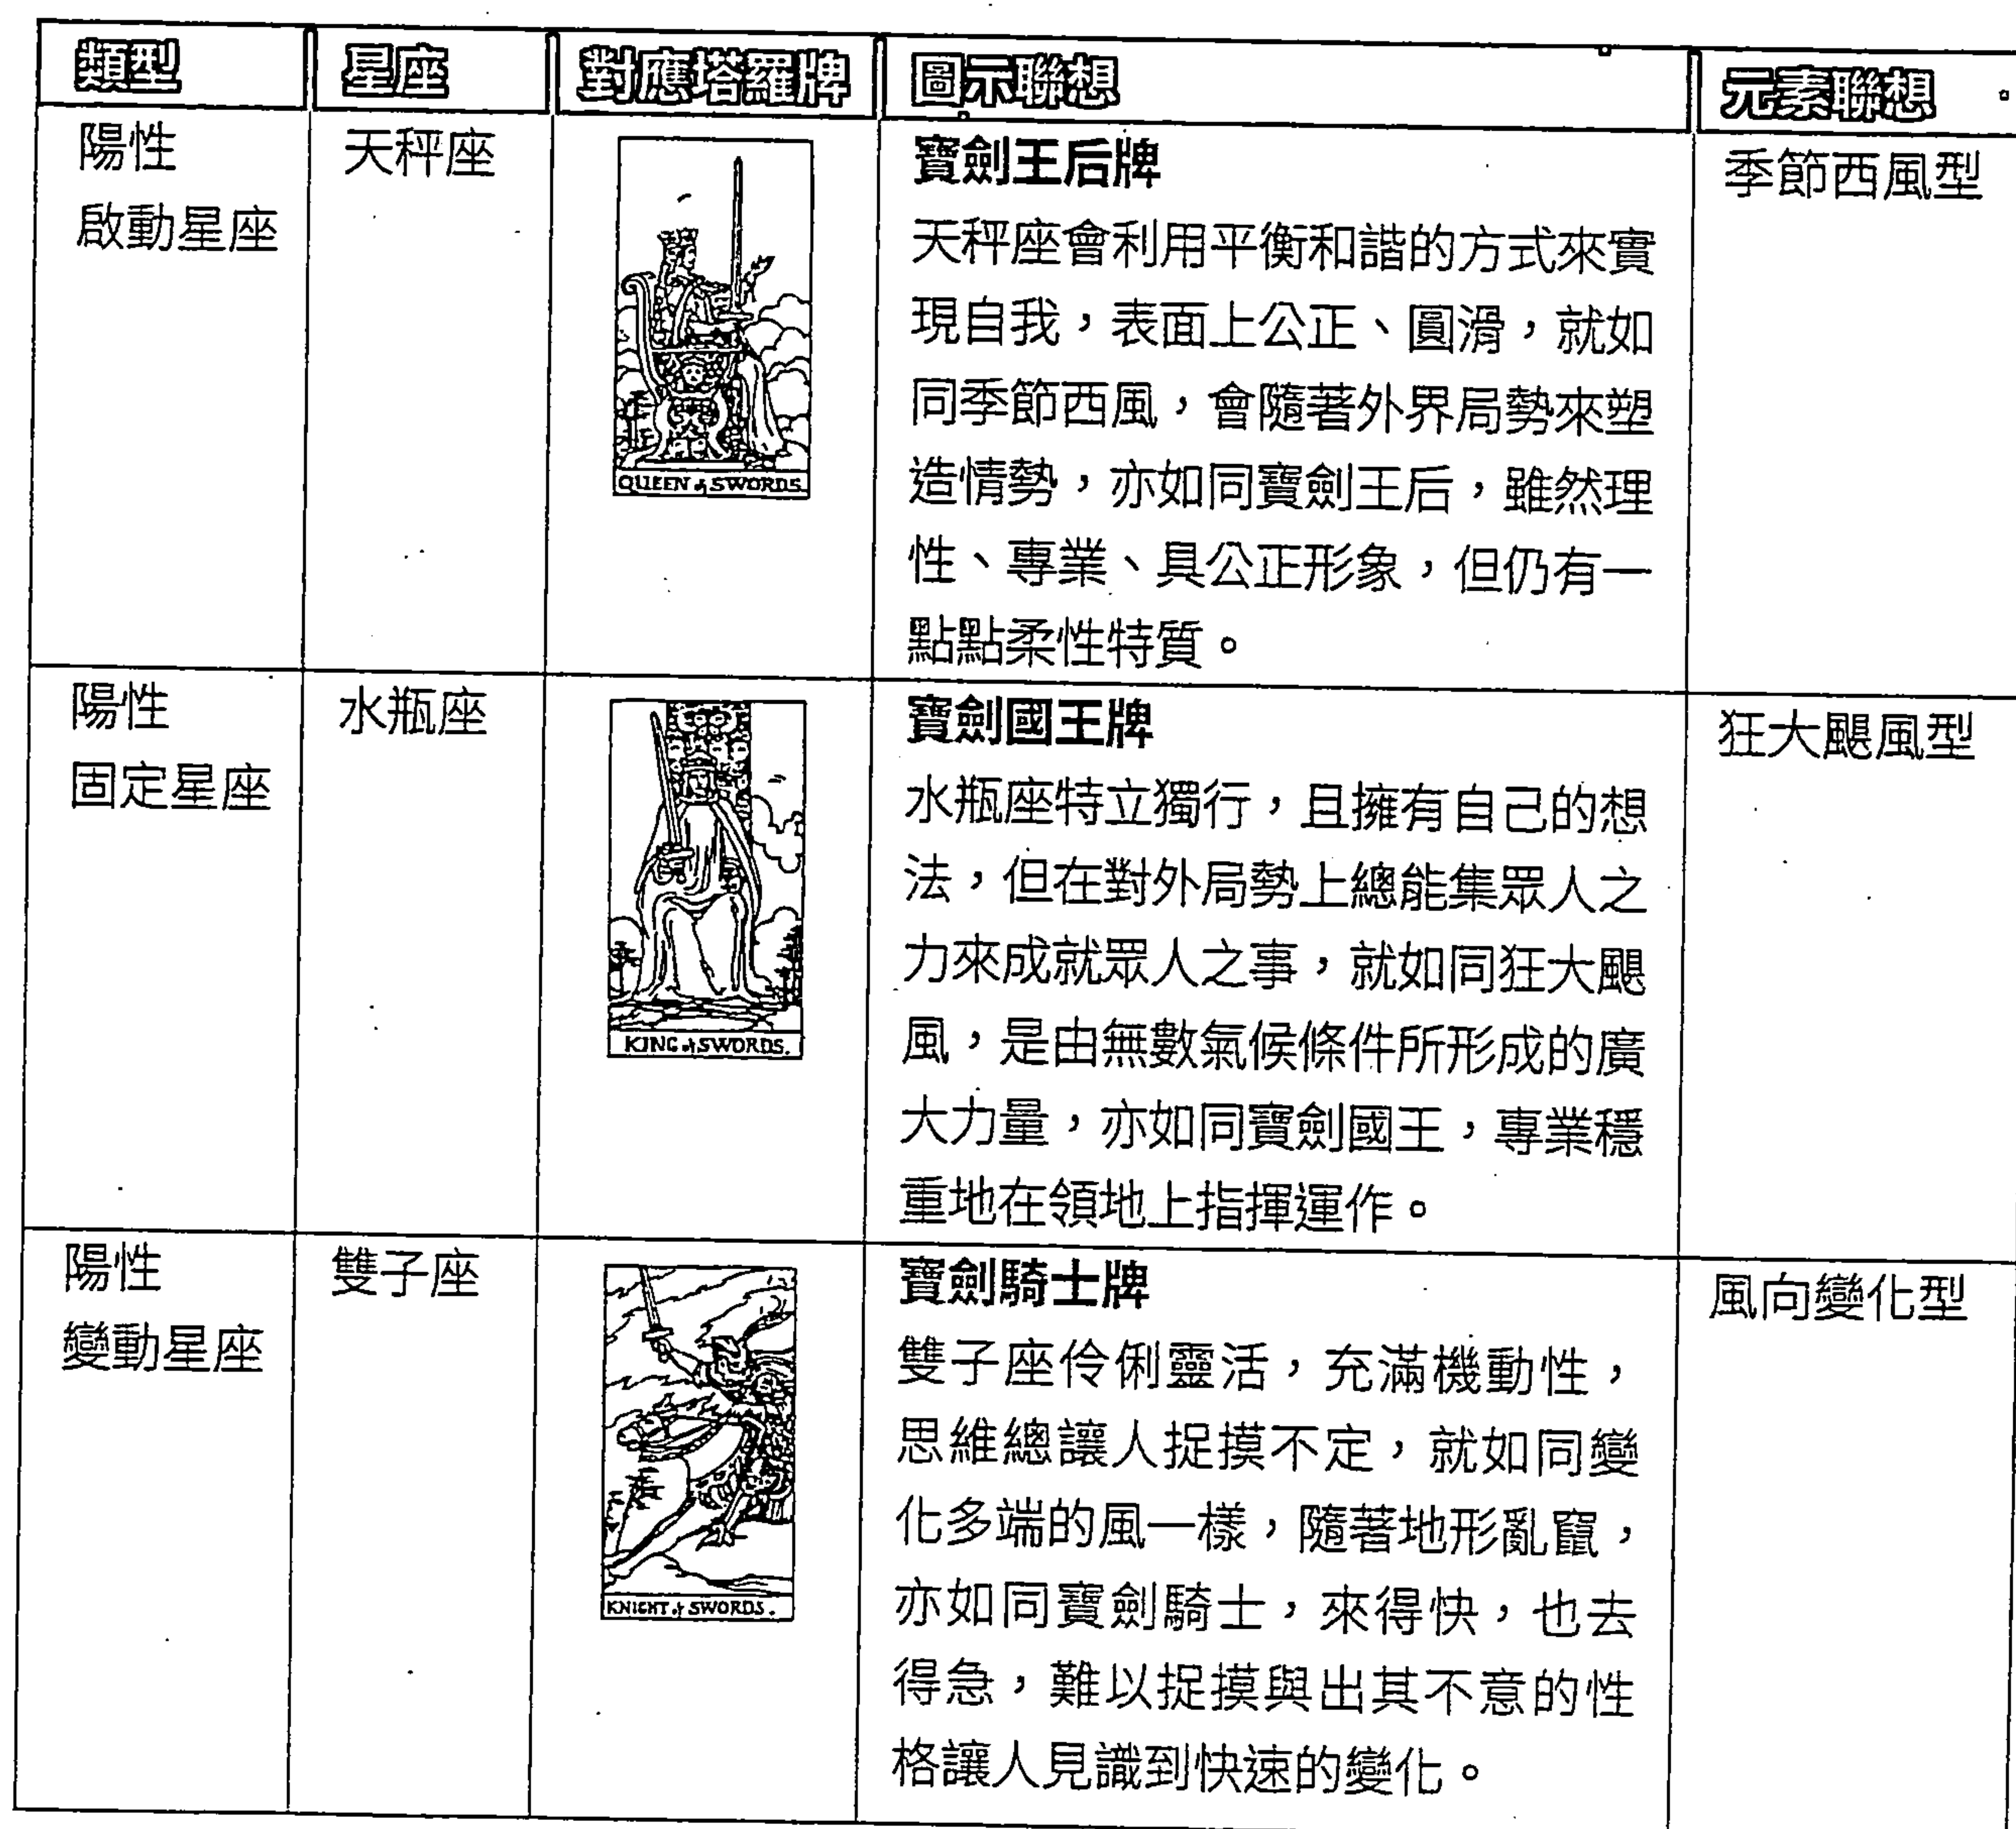 類型 星座 對應塔羅牌 圖示聯想 元素聯想
陽性
啟動星座
天秤座
QUEEN of SWORDS.
寶劍王后牌
天秤座會利用平衡和諧的方式來實
現自我，表面上公正、圓滑，就如
同季節西風，會隨著外界局勢來塑
造情勢，亦如同寶劍王后，雖然理
性、專業、具公正形象，但仍有一
點點柔性特質。
季節西風型
陽性
固定星座
水瓶座
KING of SWORDS.
寶劍國王牌
水瓶座特立獨行，且擁有自己的想
法，但在對外局勢上總能集眾人之
力來成就眾人之事，就如同狂大颶
風，是由無數氣候條件所形成的廣
大力量，亦如同寶劍國王，專業穩
重地在領地上指揮運作。
狂大颶風型
陽性
變動星座
雙子座
KNIGHT of SWORDS.
寶劍騎士牌
雙子座伶俐靈活，充滿機動性，
思維總讓人捉摸不定，就如同變
化多端的風一樣，隨著地形亂竄，
亦如同寶劍騎士，來得快，也去
得急，難以捉摸與出其不意的性
格讓人見識到快速的變化。
風向變化型